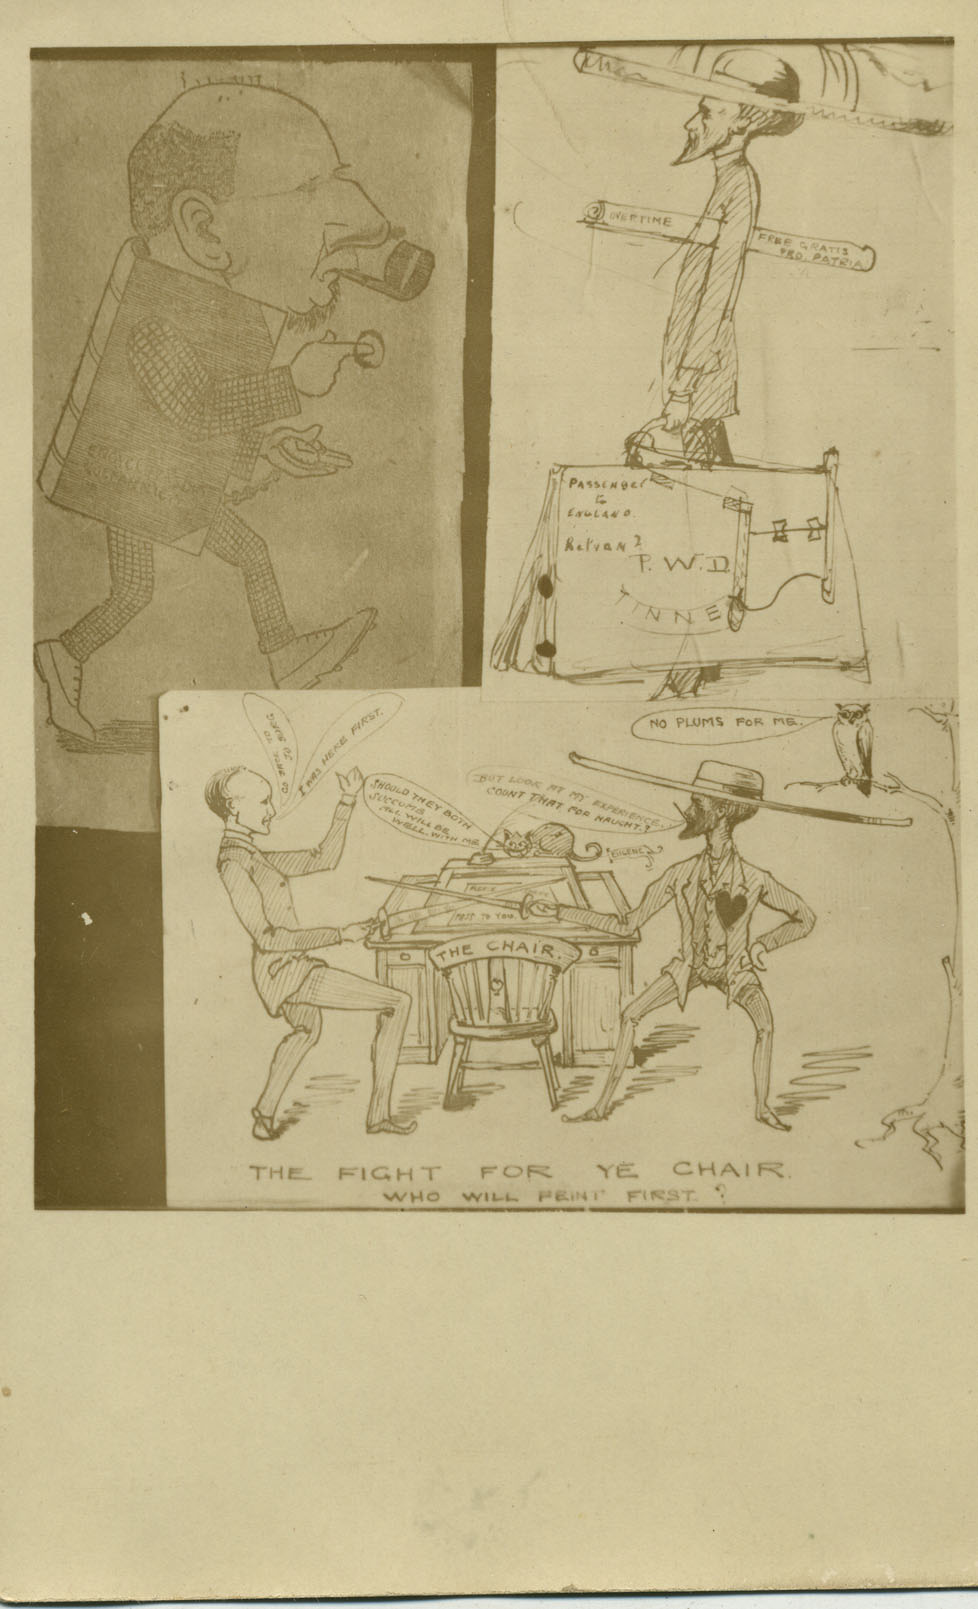 OVERTIME
FREE GRATIS
PRO. PATRIA
PASSENGER
to
ENGLAND.
Return?
P. W. D.
TINNE
I WAS HERE FIRST.
SHOULD THEY BOTH
SUCCUMB
ALL WILL BE
WELL. WITH ME
BUT LOOK AT MY EXPERIENCE..
COUNT THAT FOR NAUGHT.?
NO PLUMS FOR ME.
"EILENE"
POST TO YOU.
THE CHAIR.
THE FIGHT FOR YE CHAIR.
WHO WILL FEINT FIRST. ?